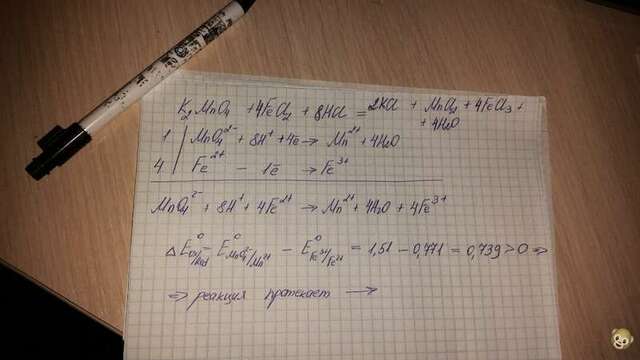 K₂MnO₄ + 4FeCl₂ + 8HCl = 2KCl + MnCl₂ + 4FeCl₃ +
+ 4H₂O
1 | MnO₄²⁻ + 8H⁺ + 4e → Mn²⁺ + 4H₂O
4 | Fe²⁺ − 1e → Fe³⁺
MnO₄²⁻ + 8H⁺ + 4Fe²⁺ → Mn²⁺ + 4H₂O + 4Fe³⁺
ΔE⁰ox/Red = E⁰MnO₄²⁻/Mn²⁺ − E⁰Fe³⁺/Fe²⁺ = 1,51 − 0,771 = 0,739 > 0 ⇒
⇒ реакция протекает →